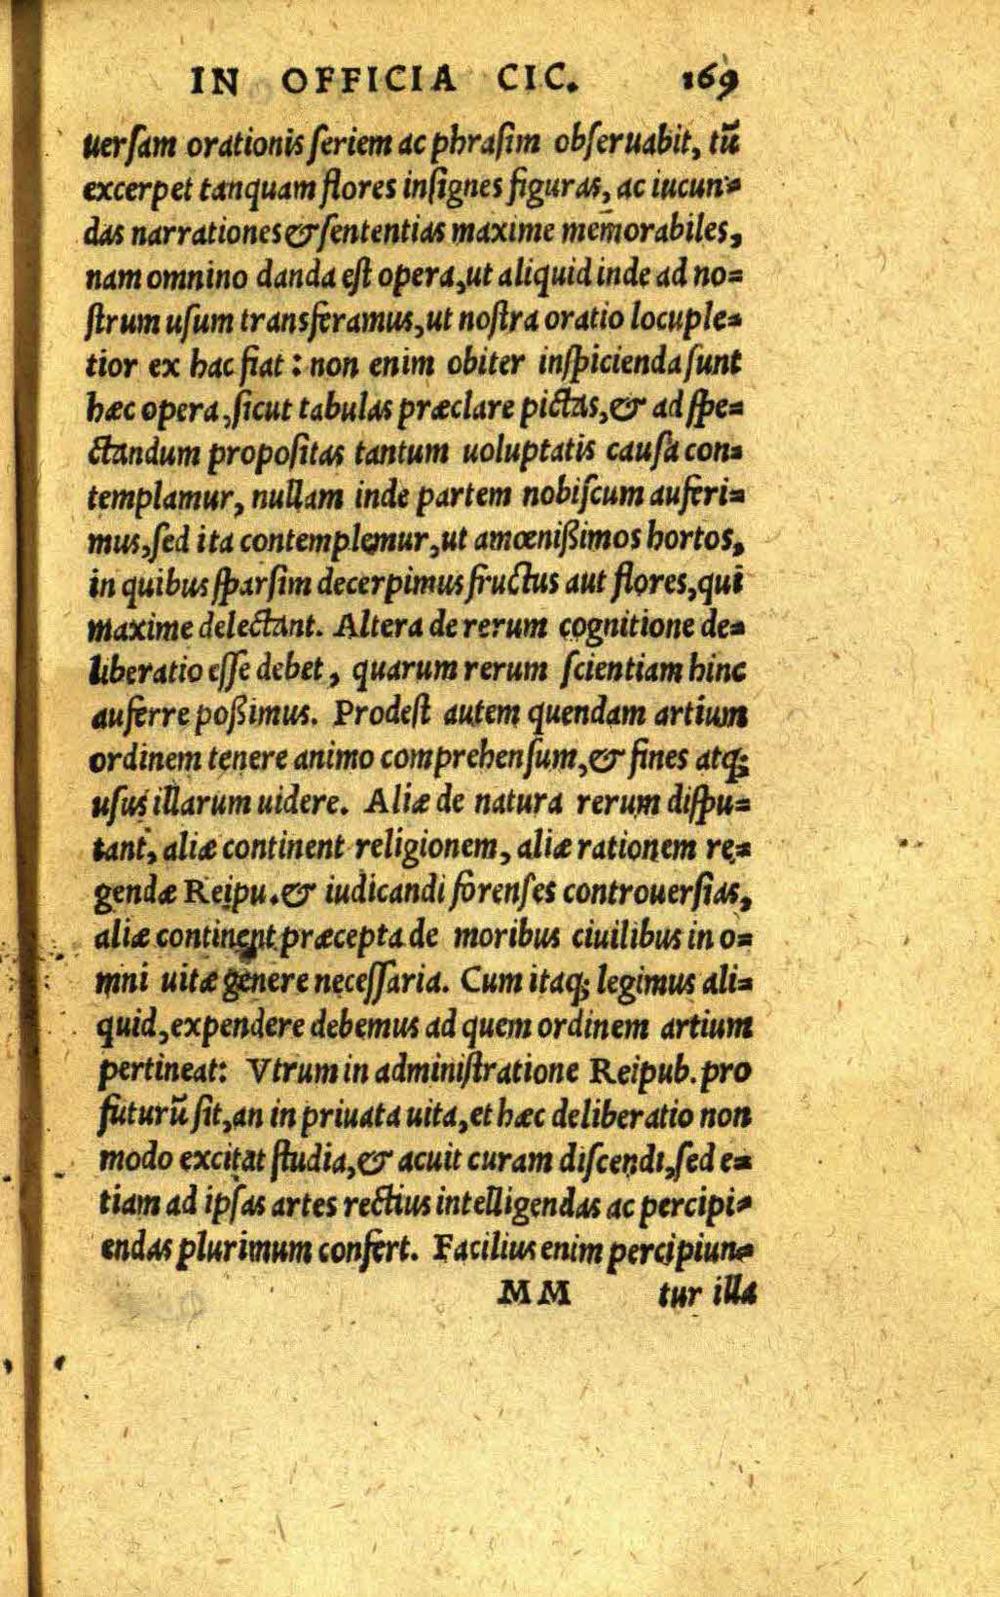 IN OFFICIA CIC. 169
uerſam orationis ſeriem ac phraſim obſeruabit, tū
excerpet tanquam flores inſignes figuras, ac iucun=
das narrationes & ſententias maxime memorabiles,
nam omnino danda eſt opera, ut aliquid inde ad no=
ſtrum uſum transferamus, ut noſtra oratio locuple=
tior ex hac fiat: non enim obiter inſpicienda ſunt
hæc opera, ſicut tabulas præclare pictas, & ad ſpe=
ctandum propoſitas tantum uoluptatis cauſa con=
templamur, nullam inde partem nobiſcum auferi=
mus, ſed ita contemplemur, ut amœnißimos hortos,
in quibus ſparſim decerpimus fructus aut flores, qui
maxime delectant. Altera de rerum cognitione de=
liberatio eſſe debet, quarum rerum ſcientiam hinc
auferre poßimus. Prodeſt autem quendam artium
ordinem tenere animo comprehenſum, & fines atq;
uſus illarum uidere. Aliæ de natura rerum diſpu=
tant, aliæ continent religionem, aliæ rationem re=
gendæ Reipu. & iudicandi forenſes controuerſias,
aliæ continent præcepta de moribus ciuilibus in o=
mni uitæ genere neceſſaria. Cum itaq; legimus ali=
quid, expendere debemus ad quem ordinem artium
pertineat: Vtrum in adminiſtratione Reipub. pro
futurū ſit, an in priuata uita, et hæc deliberatio non
modo excitat ſtudia, & acuit curam diſcendi, ſed e=
tiam ad ipſas artes rectius intelligendas ac percipi=
endas plurimum confert. Facilius enim percipiun=
MM tur illa